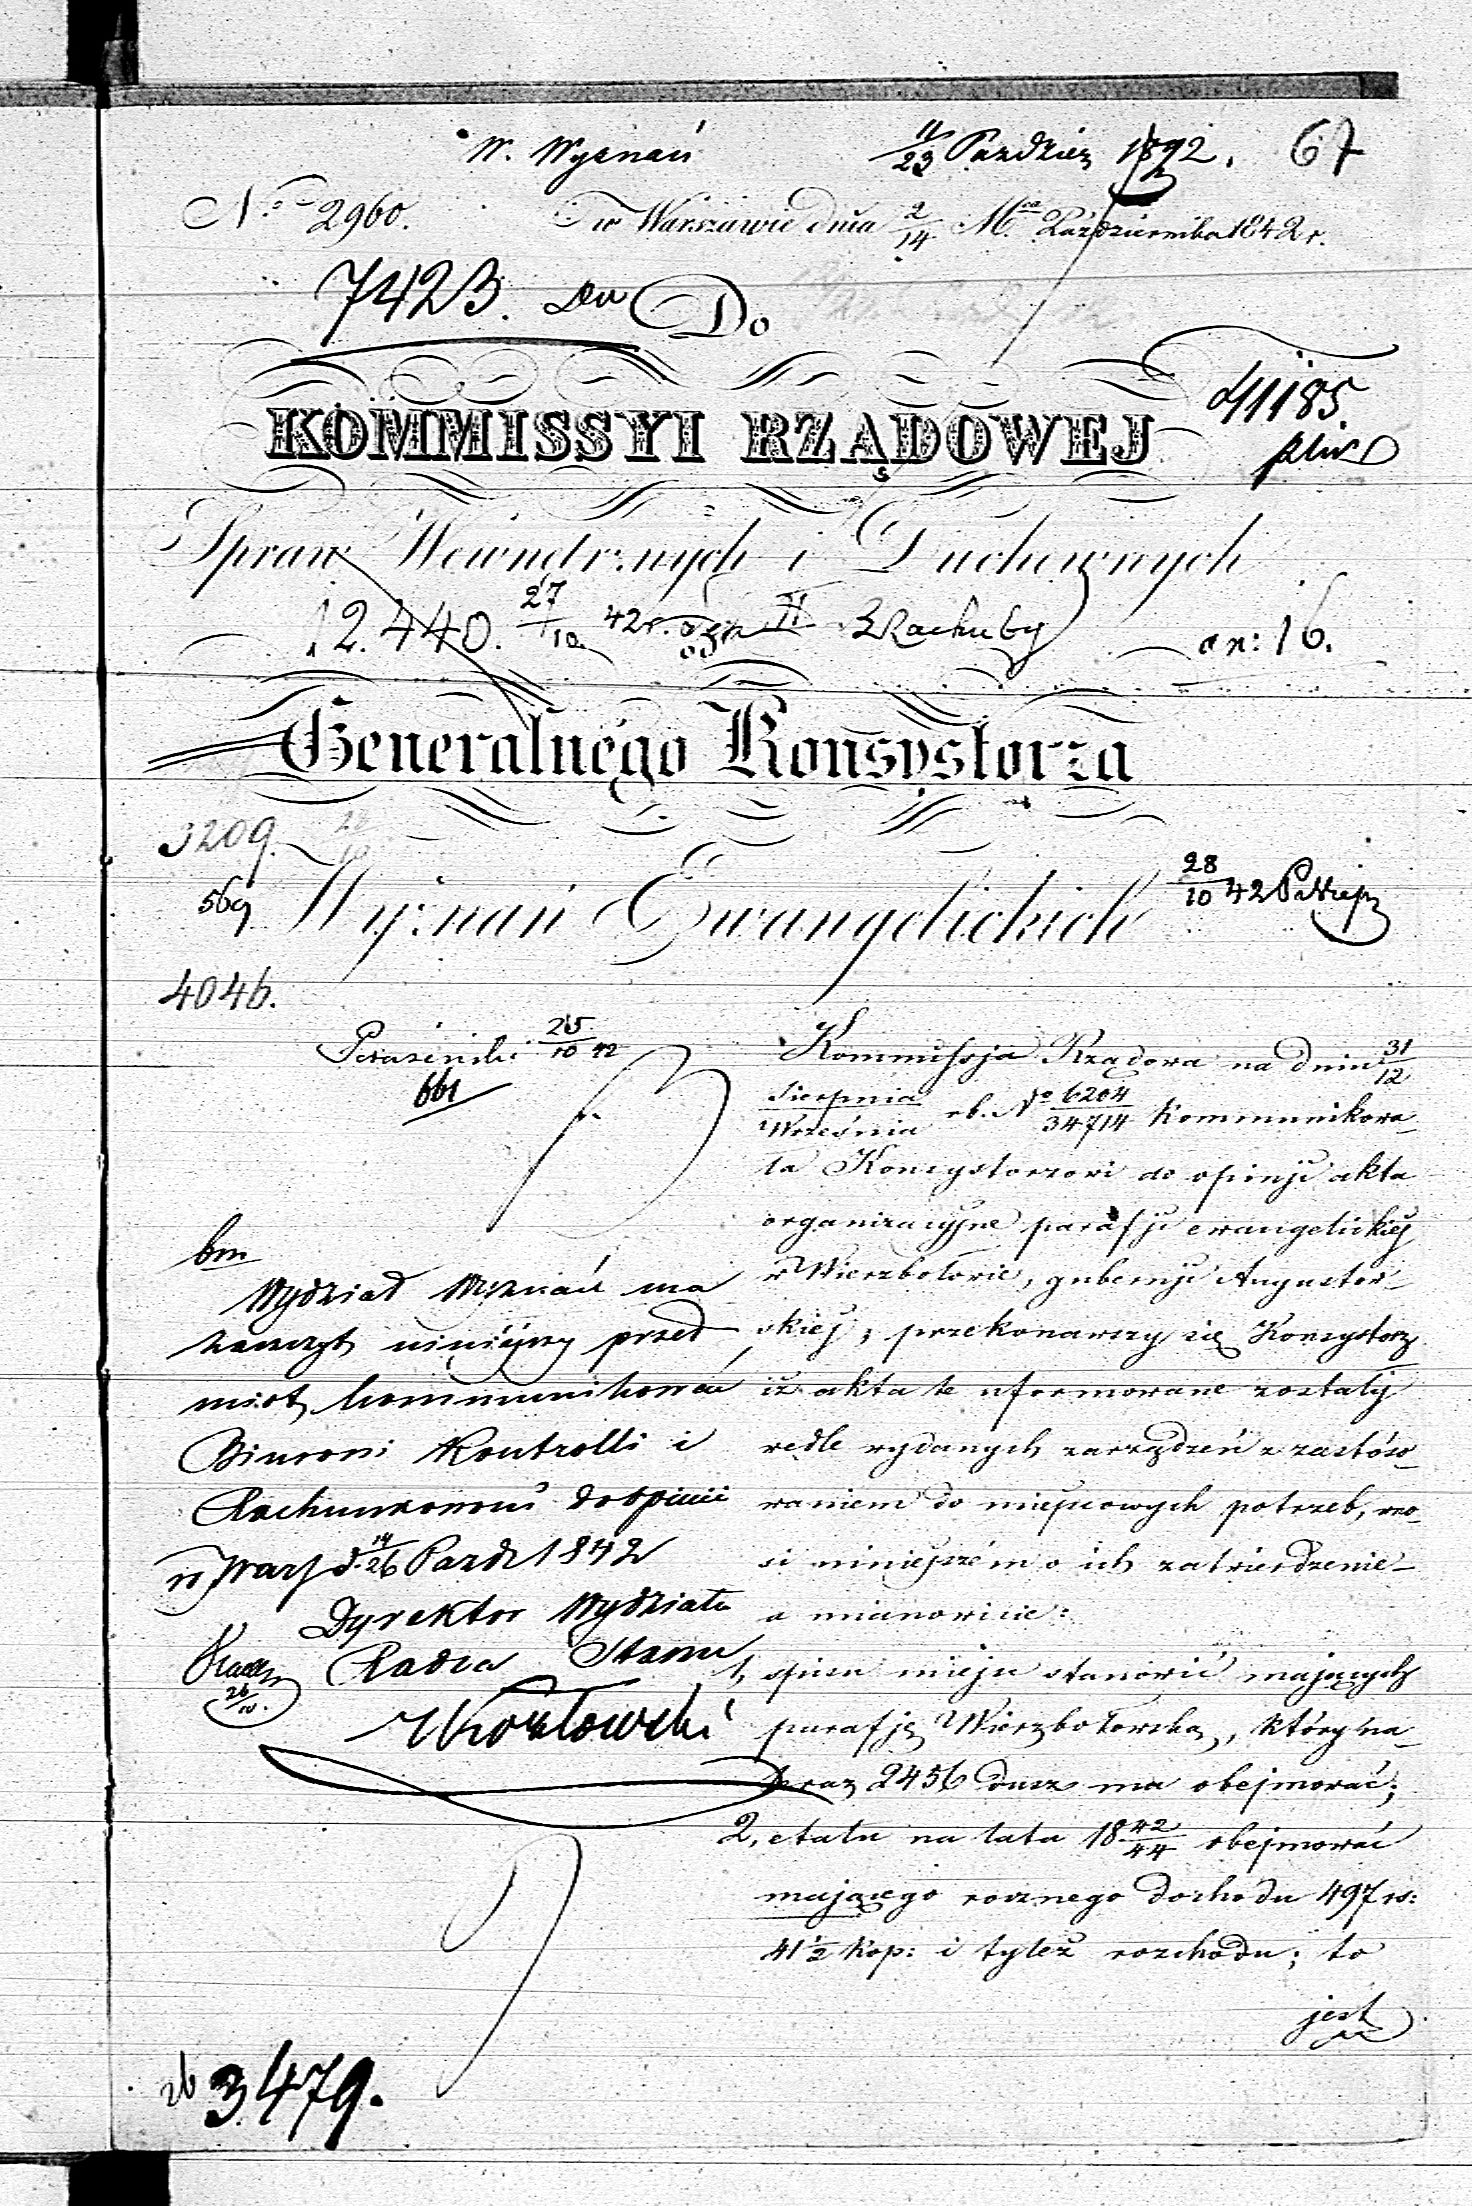 W. Wyznań 11/23 Paździer 1842. 67
No 2960. w Warszawie dnia 2/14 Mca Października 1842 r.
7423. Do
KOMMISSYI RZĄDOWEJ
41185
Spraw Wewnętrznych i Duchownych
12.440. 27/10 42 r. Z Rachuby an: 16.
Generalnego Konsystorza
3209.
569 Wyznań Ewangelickich 28/10 42
4046.
25/10 42
661
Kommissja Rządowa na dniu 31/12
Sierpnia/Września rb. No 6204/34714 kommunikowa-
ła Konsystorzowi do opinji akta
organizacyjne parafji ewangelickiej
w Wierzbołowie, gubernji Augustow-
skiej; przekonawszy się Konsystorz
iż akta te uformowane zostały
wedle wydanych zarządzeń z zastóso-
waniem do miejscowych potrzeb, wno-
si niniejszém o ich zatwierdzenie
a mianowicie:
1, spisu miejsc stanowić mających
parafję Wierzbołowską, który na-
teraz 2456 dusz ma obejmować;
2, etatu na lata 18 42/44 obejmować
mającego rocznego dochodu 497 rs:
41 1/2 kop: i tyleż rozchodu; to
jest
bm
Wydział Wyznań ma
zaszczyt niniejszy przed
miot kommunikować
Biurowi Kontrolli i
Rachunkowości do opinii
w Warsz d. 14/26 Paźdz 1842
Dyrektor Wydziału
Radca Stanu
Kozłowski
26/10.
3479.